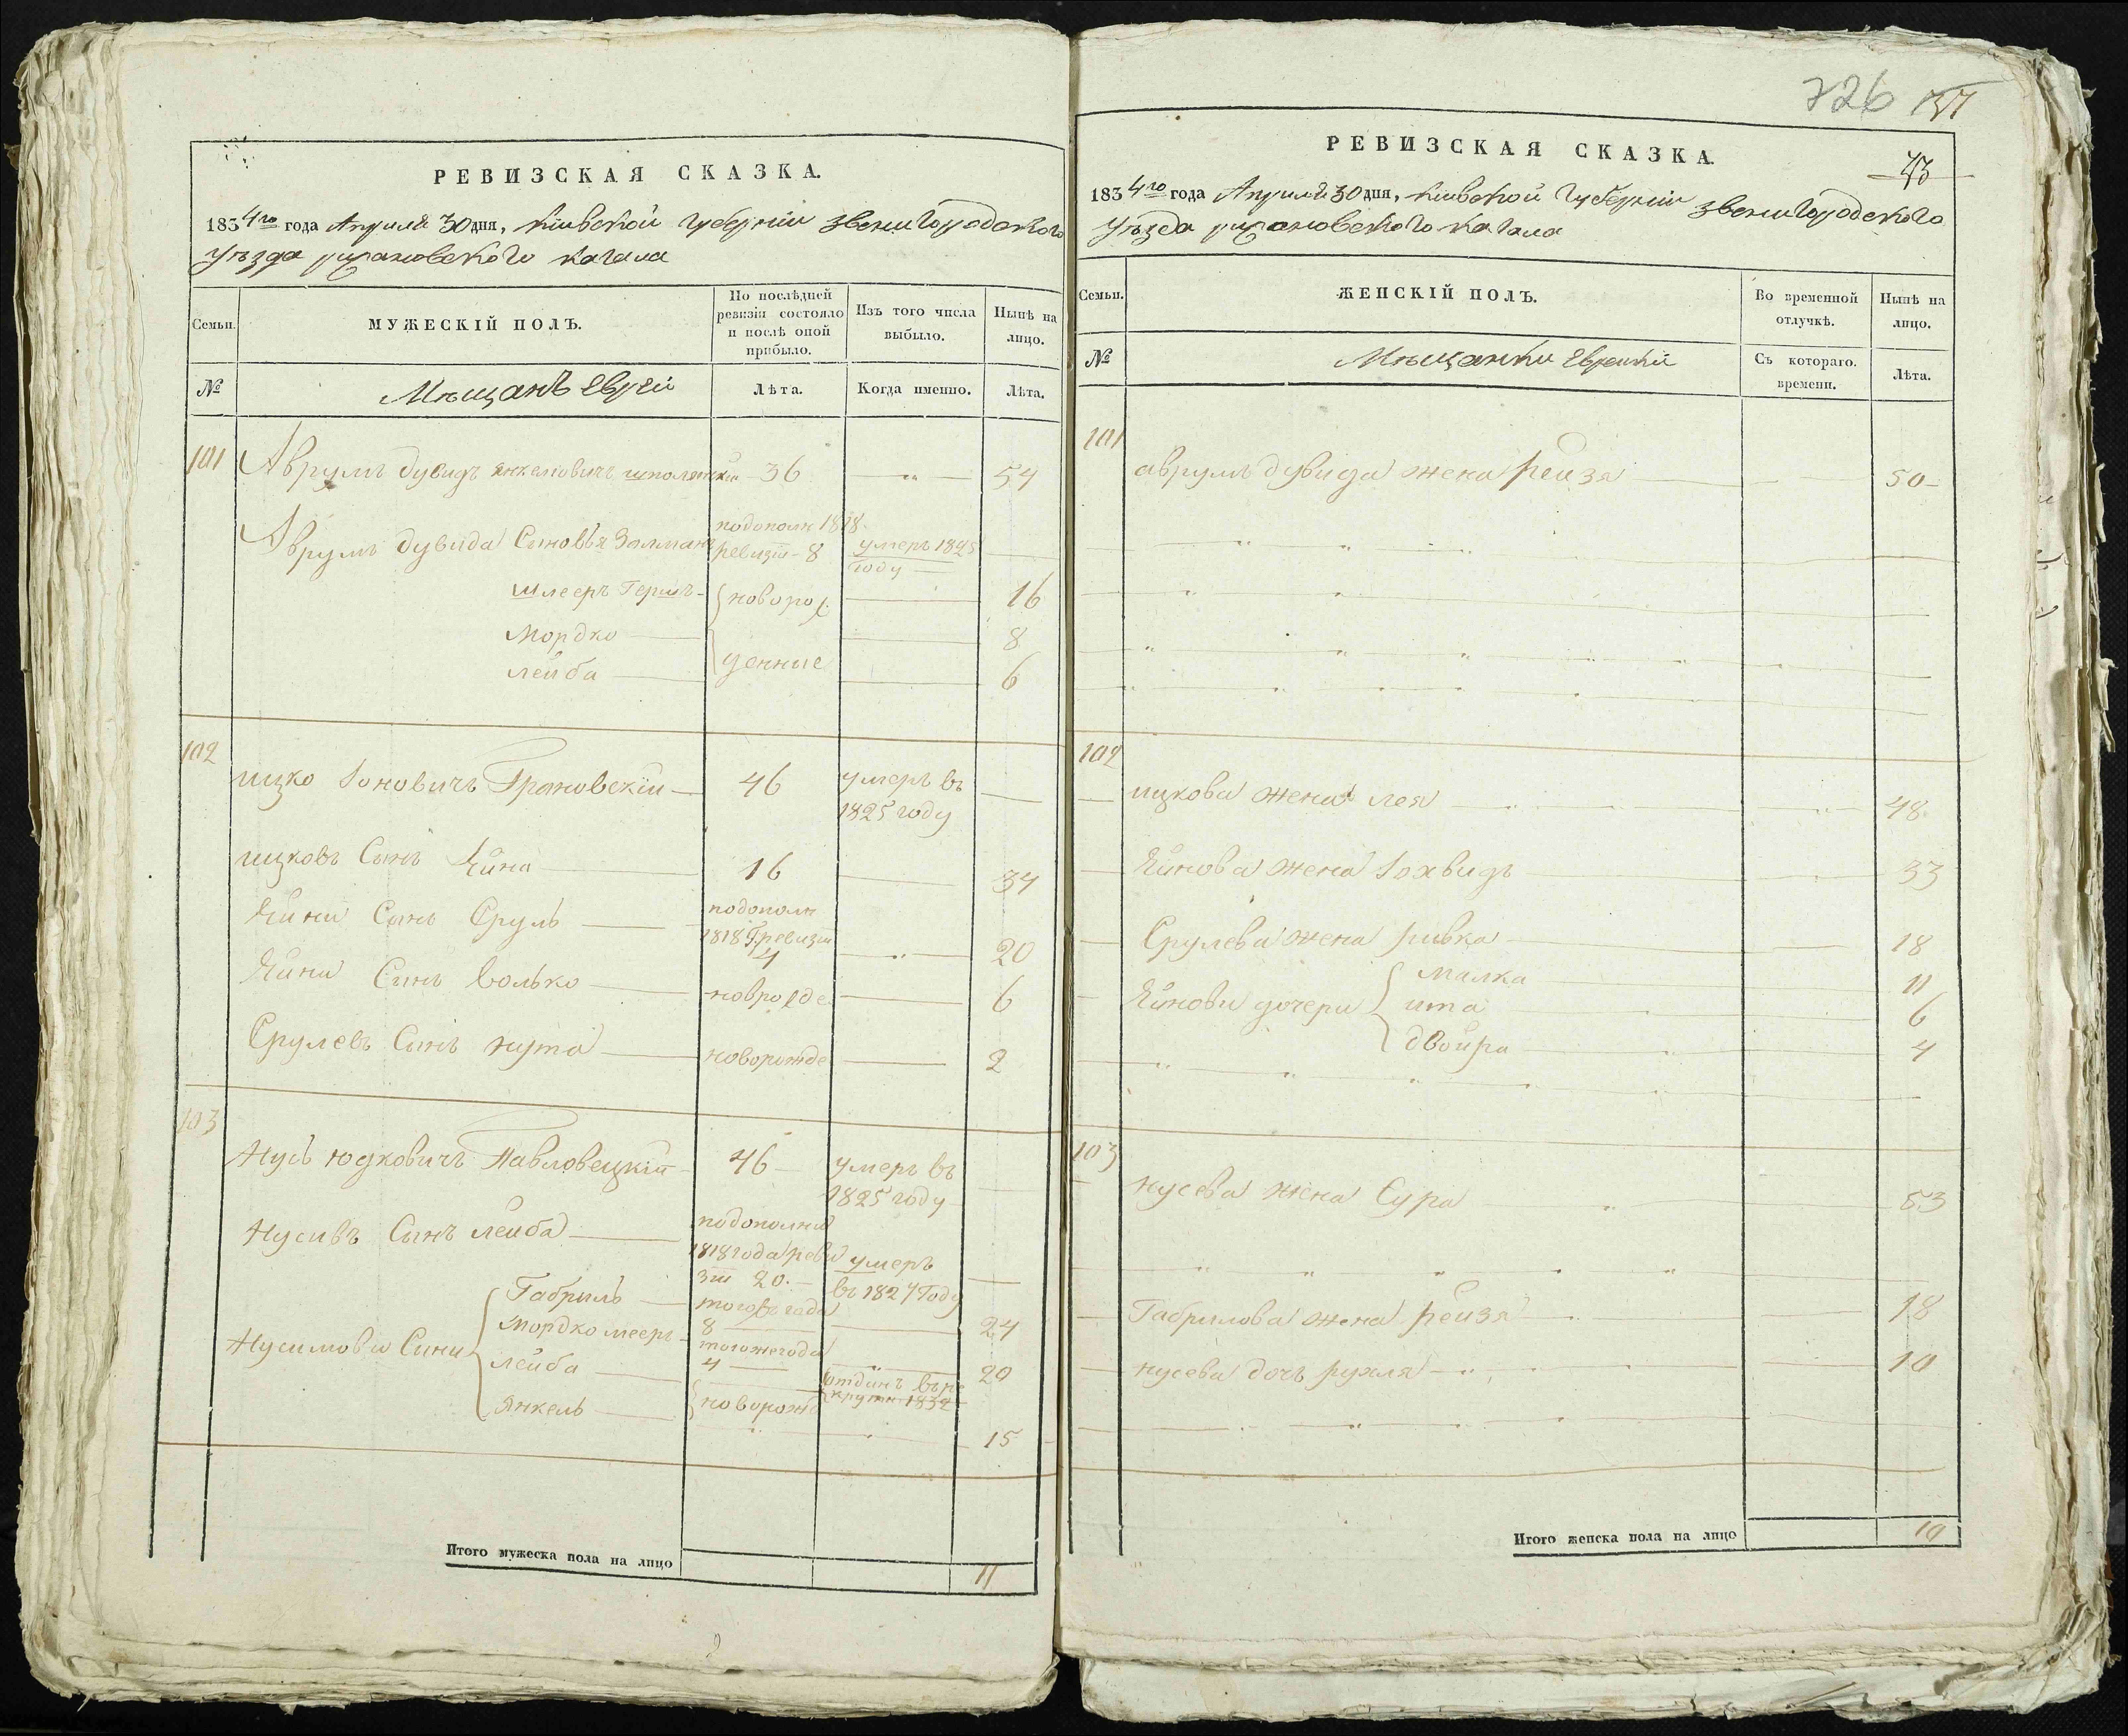 РЕВИЗСКАЯ СКАЗКА.
1834го года Априля 30 дня, Кіивской губерніи звенигородского
уѣзда рижановского кагала
Семьи.
МУЖЕСКІЙ ПОЛЪ.
По послѣдней ревизіи состояло и послѣ оной прибыло.
Изъ того числа выбыло.
Нынѣ на лицо.
№
Мѣщанъ Еврей
Лѣта.
Когда именно.
Лѣта.
101 Аврумъ дувидъ янкеловичъ шполянскій 36 54
Аврумъ дувида Сыновья Залманъ подополн 1818 ревизіи 8 умеръ 1825 году
Шлееръ Гершъ новорож 16
Мордко 8
лейба денние 6
102
ицко Іоновичъ Грановскій 46 умеръ въ 1825 году
ицковъ Сынъ Яйна 16 34
Яйни Сынъ Сруль подополн 1818 Г. ревизіи 4 20
Яйни Синъ Волько новрожде 6
Срулевъ Синъ нута новорожде 2
103
Нусъ юдковичъ Павловецкій 46 умеръ въ 1825 году
Нусивъ Сынъ лейба подополни 1818 года реви зіи 20. умеръ въ 1827 Году
Габриль тогожъ года 8 24
Мордко мееръ тогожегода 4 20
Нусимови Сини
лейба отданъ въ ре круты 1832
янкель новорожд 15
Итого мужеска пола на лицо 11
726
43
РЕВИЗСКАЯ СКАЗКА.
1834го года Априля 30 дня, Кіивской губерніи звенигородского
уѣзда рижановского кагала
Семьи.
ЖЕНСКІЙ ПОЛЪ.
Во временной отлучкѣ.
Нынѣ на лицо.
№
Мѣщанки Еврейки
Съ котораго. времени.
Лѣта.
101
аврумъ дувида жена рейзя 50
102
ицкова жена лея 48
Яйнова жена Іохвидъ 33
Срулева жена ривка 18
Малка 11
Яйнови дочери ита 6
двойра 4
103
нусева жена Сура 53
Габрилова жена рейзя 18
нусева дочъ рухля 10
Итого женска пола на лицо 10